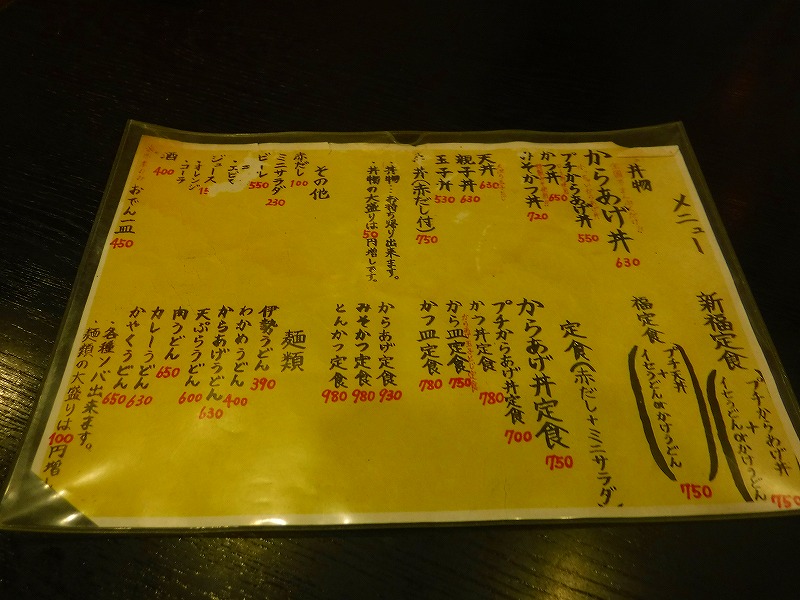 メニュー
丼物
からあげ丼 630
プチからあげ丼 550
かつ丼 650
みそかつ丼 720
天丼 630
親子丼 630
玉子丼 530
丼(赤だし付) 750
・丼物・お持ち帰り出来ます。
・丼物の大盛りは50円増しです。
その他
赤だし 100
ミニサラダ 230
ビール 550
ジュース
・オレンジ
・コーラ
酒 400
おでん一皿 450
新福定食
プチからあげ丼
+
イセうどんorかけうどん
750
福定食
プチ天丼
+
イセうどんorかけうどん
750
定食(赤だし+ミニサラダ)
からあげ丼定食 750
プチからあげ丼定食 700
かつ丼定食 780
から皿定食 750
かつ皿定食 780
からあげ定食 930
みそかつ定食 980
とんかつ定食 980
麺類
伊勢うどん 390
わかめうどん 400
からあげうどん 630
天ぷらうどん 600
肉うどん 650
カレーうどん 630
かやくうどん 650
・各種ソバ出来ます。
・麺類の大盛りは100円増し